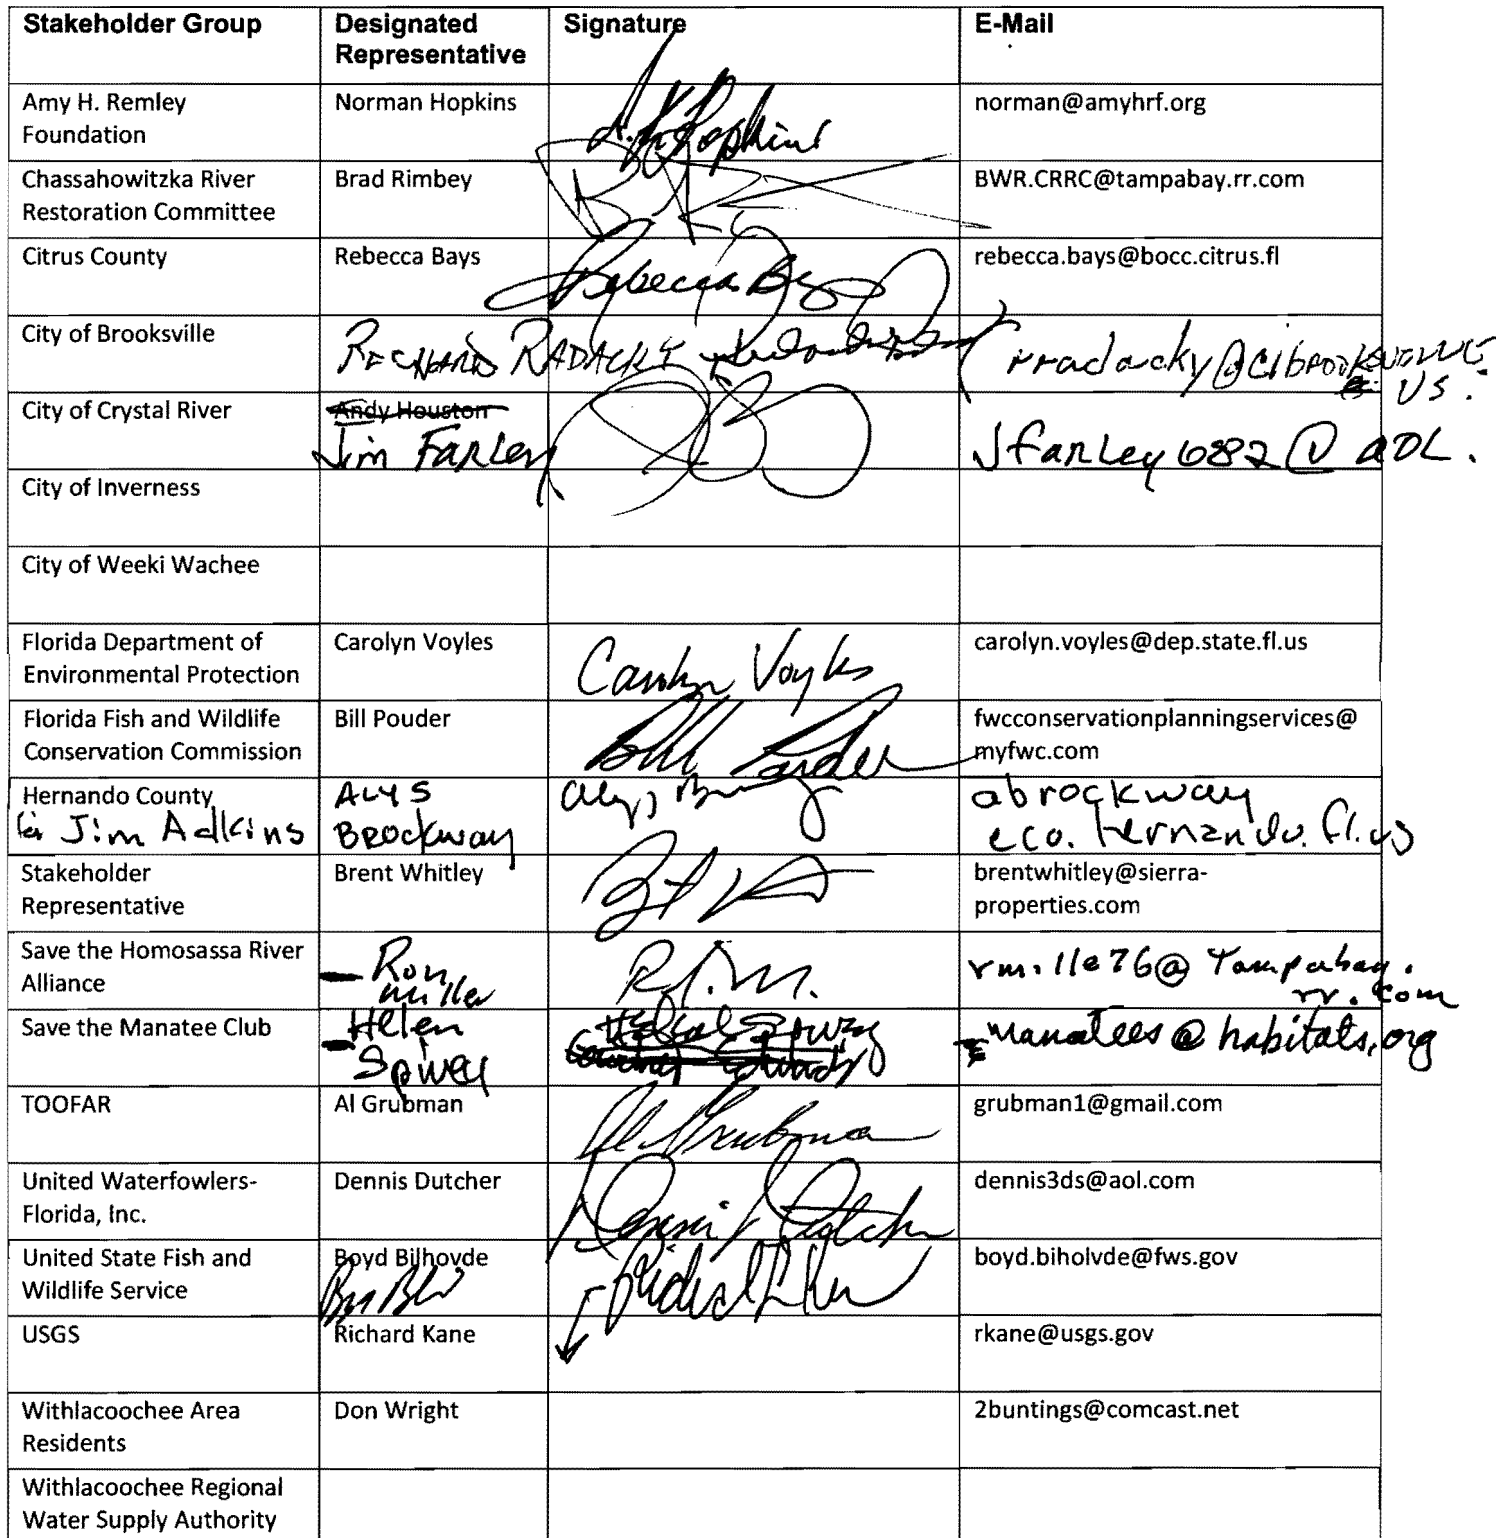 Stakeholder Group
Designated
Representative
Signature
E-Mail
Amy H. Remley
Foundation
Norman Hopkins
norman@amyhrf.org
Chassahowitzka River
Restoration Committee
Brad Rimbey
BWR.CRRC@tampabay.rr.com
Citrus County
Rebecca Bays
Rebecca Bays
rebecca.bays@bocc.citrus.fl
City of Brooksville
RADACKY
City of Crystal River
Andy Houston
Jim Farley
Jfarley6832@AOL.
City of Inverness
City of Weeki Wachee
Florida Department of
Environmental Protection
Carolyn Voyles
Carolyn Voyles
carolyn.voyles@dep.state.fl.us
Florida Fish and Wildlife
Conservation Commission
Bill Pouder
Bill Pouder
fwcconservationplanningservices@
myfwc.com
Hernando County
Jim Adkins
ALYS
BROCKWAY
abrockway
@co.hernando.fl.us
Stakeholder
Representative
Brent Whitley
brentwhitley@sierra-
properties.com
Save the Homosassa River
Alliance
Ron
Miller
R.J.M.
rmille76@Tampabay.
rr.com
Save the Manatee Club
Helen
Spivey
manatees@habitats.org
TOOFAR
Al Grubman
Al Grubman
grubman1@gmail.com
United Waterfowlers-
Florida, Inc.
Dennis Dutcher
Dennis Dutcher
dennis3ds@aol.com
United State Fish and
Wildlife Service
Boyd Bilhovde
boyd.biholvde@fws.gov
USGS
Richard Kane
rkane@usgs.gov
Withlacoochee Area
Residents
Don Wright
2buntings@comcast.net
Withlacoochee Regional
Water Supply Authority